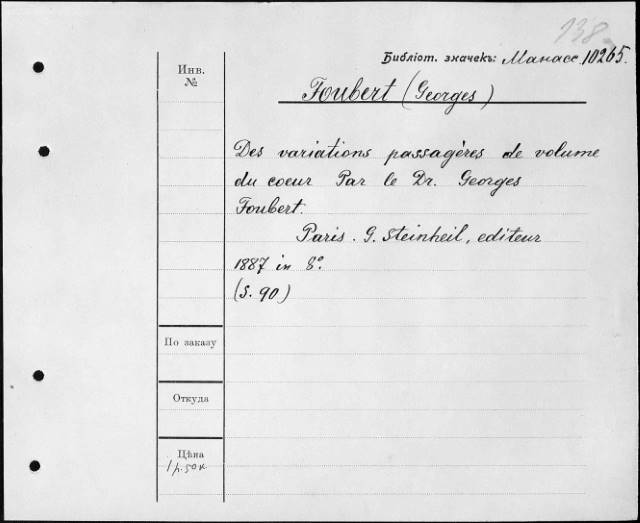 138
Библіот. значекъ: Манасс. 10265.
Инв.
№
Foubert (Georges)
Des variations passagères de volume
du coeur Par le Dr. Georges
Foubert.
Paris. G. Steinheil, editeur
1887 in 8°.
(S. 90)
По заказу
Откуда
Цѣна
1 р. 50 к